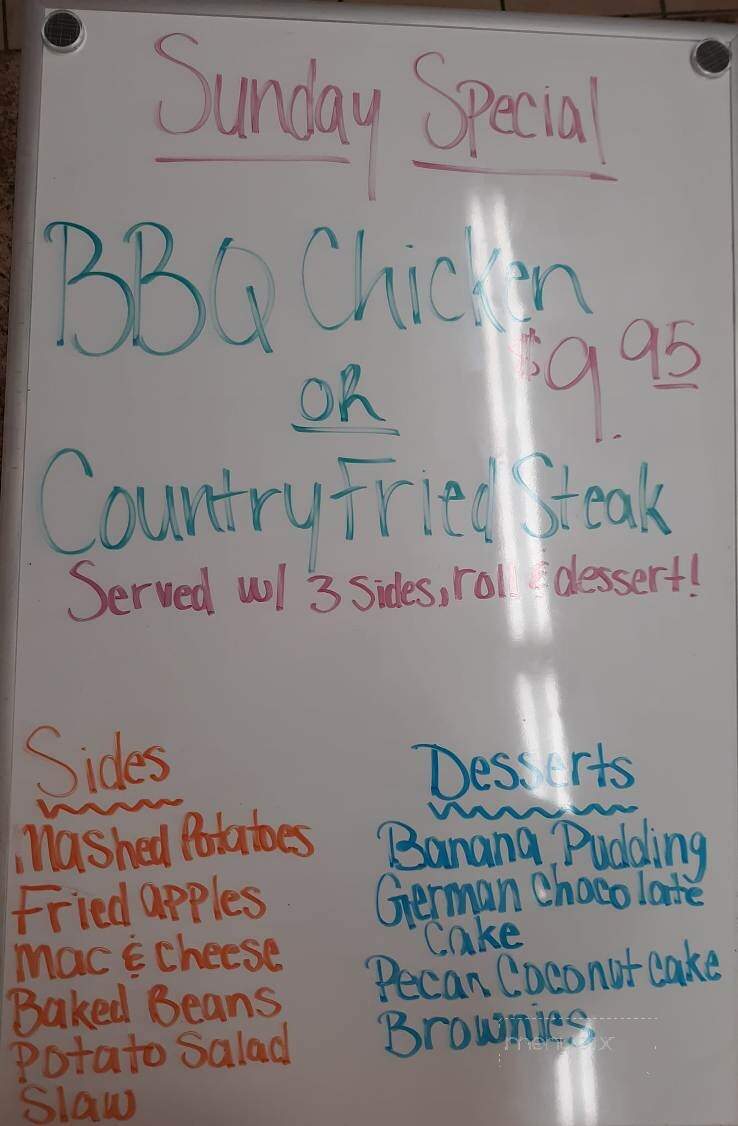 Sunday Special
BBQ Chicken
$9.95
OR
Country Fried Steak
Served w/ 3 sides, roll & dessert!
Sides
Mashed Potatoes
Fried apples
Mac & cheese
Baked Beans
Potato Salad
Slaw
Desserts
Banana Pudding
German Chocolate
Cake
Pecan Coconut cake
Brownies